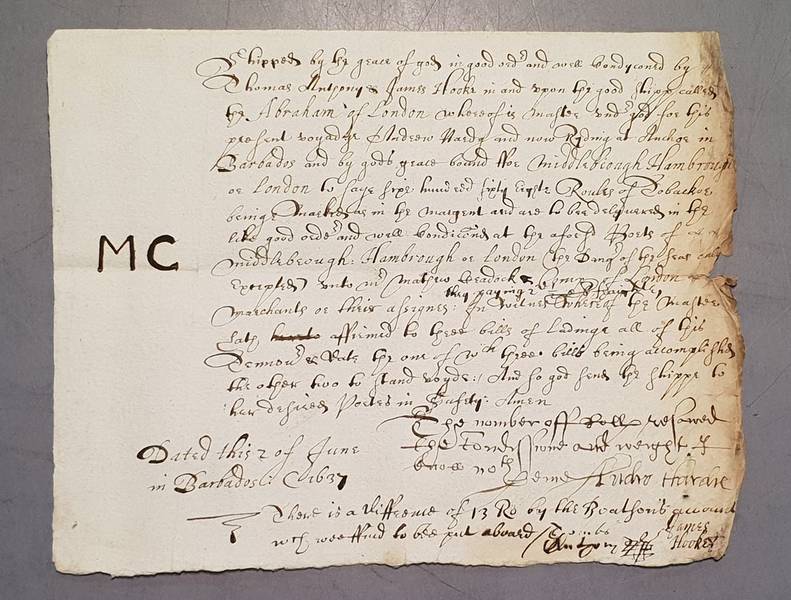 Shipped by the grace of god in good ordr and well Condyconed by
Thomas Anthony & James Hooke in and upon the good shipp called
the Abraham of London whereof is Master undr god for this
present voyadge Andrew Hardy and now Riding at Anchor in
Barbados and by gods grace bound ffor Middlebrough Hambrough
or London to saye sixe hundred sixty eight Roules of Tobackoe
beinge Marked as in the margent and are to bee delyvered in the
like good ordr and well Conditoned at the aforesd Ports of
Middlebrough: Hambrough or London (the Dangr of the seas only
Excepted) unto mr Mathew Cradock & London
they paying
marchants or their assignes: In witnes whereof the Master
hath affirmed to three bills of Ladinge all of this
Tennour & Date the one of wch three bills being accomplished
the other two to stand voyde: And so god send the shippe to
her desired Portes in Safety: Amen
The nomber off Rolls resawed
the Condissione and weight I
know noth
Dated this 2 of June
in Barbados: 1637
MC
Andro Hardie
There is a difference of 13 Ro by the Boatson's account
wch wee ffind to bee put aboard
Anthony
James
Hooke